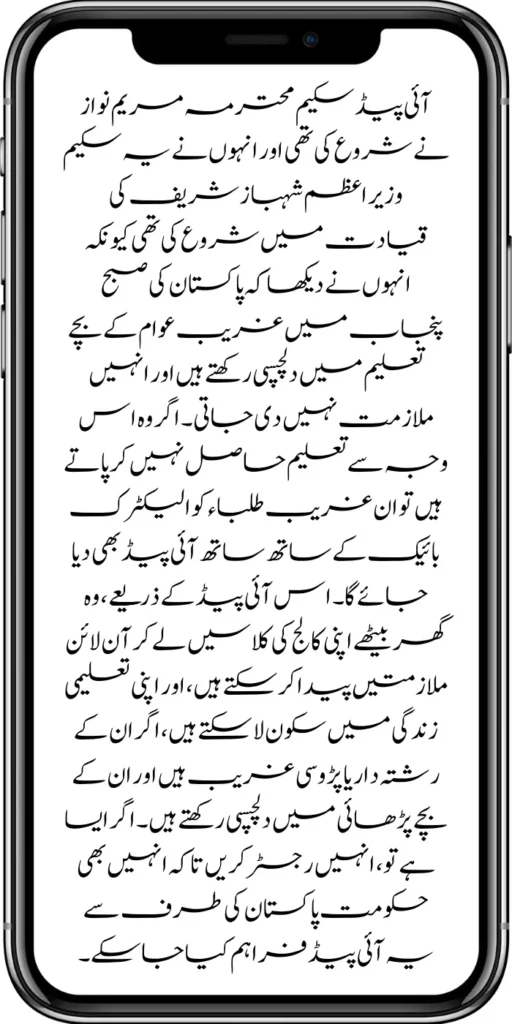 آئی پیڈ سکیم محترمہ مریم نواز
نے شروع کی تھی اور انہوں نے یہ سکیم
وزیر اعظم شہباز شریف کی
قیادت میں شروع کی تھی کیونکہ
انہوں نے دیکھا کہ پاکستان کی صبح
پنجاب میں غریب عوام کے بچے
تعلیم میں دلچسپی رکھتے ہیں اور انہیں
ملازمت نہیں دی جاتی۔ اگر وہ اس
وجہ سے تعلیم حاصل نہیں کر پاتے
ہیں تو ان غریب طلباء کو الیکٹرک
بائیک کے ساتھ ساتھ آئی پیڈ بھی دیا
جائے گا۔ اس آئی پیڈ کے ذریعے، وہ
گھر بیٹھے اپنی کالج کی کلاسیں لے کر آن لائن
ملازمتیں پیدا کر سکتے ہیں، اور اپنی تعلیمی
زندگی میں سکون لا سکتے ہیں، اگر ان کے
رشتہ دار یا پڑوسی غریب ہیں اور ان کے
بچے پڑھائی میں دلچسپی رکھتے ہیں۔ اگر ایسا
ہے تو، انہیں رجسٹر کریں تاکہ انہیں بھی
حکومت پاکستان کی طرف سے
یہ آئی پیڈ فراہم کیا جا سکے۔